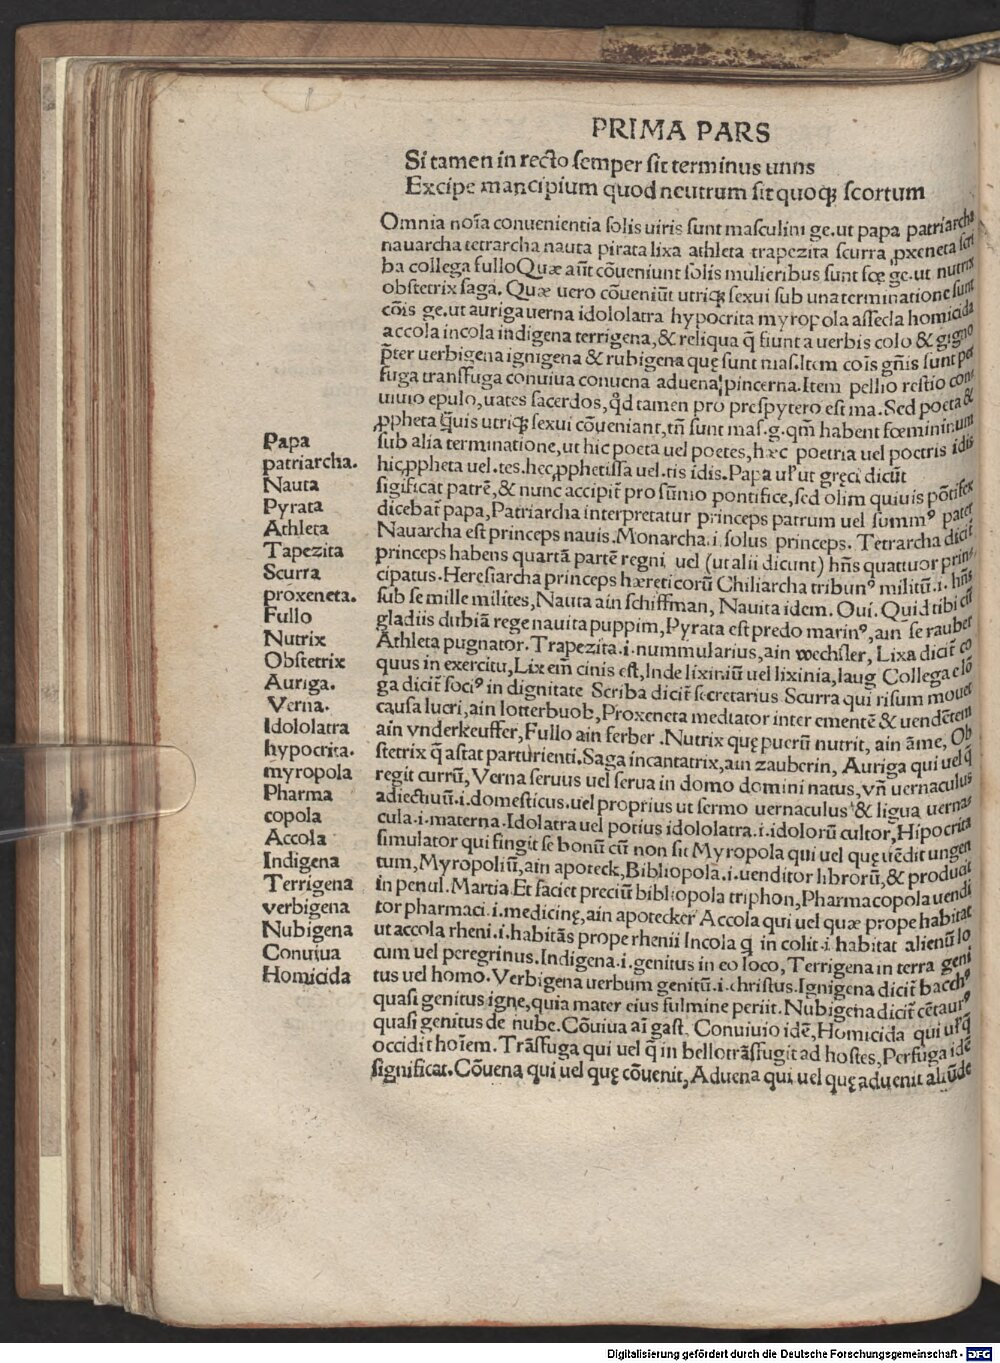 PRIMA PARS
Si tamen in recto semper sit terminus unns
Excipe mancipium quod neutrum sit quoqꝫ scortum
Omnia noĩa conuenientia solis uiris sunt masculini ge.ut papa patriarcha
nauarcha tetrarcha nauta pirata lixa athleta trapezita scurra ꝓxeneta scri
ba collega fullo Quæ aũt cõueniunt solis mulieribus sunt fœ ge.ut nutrix
obstetrix saga. Quæ uero cõueniũt utriqꝫ sexui sub una terminatione sunt
cõis ge.ut auriga uerna idololatra hypocrita myropola assecla homicida
accola incola indigena terrigena,& reliqua q̃ fiunt a uerbis colo & gigno
p̃ter uerbigena ignigena & rubigena quę sunt mas.Item cõis gñis sunt per
fuga transfuga conuiua conuena aduena pincerna.Item pellio restio con
uiuio epulo,uates sacerdos,qd̃ tamen pro prespytero est ma.Sed poeta &
ꝓpheta q̃uis utriqꝫ sexui cõueniant,tñ sunt mas.g.qm̃ habent fœmininum
sub alia terminatione,ut hic poeta uel poetes,hæc poetria uel poetris idis
hic ꝓpheta uel.tes.hec ꝓphetissa uel.tis idis.Papa ul'ut greci dicũt
sigificat patrẽ,& nunc accipit̃ pro sũmo pontifice,sed olim quiuis põtifex
dicebat̃ papa,Patriarcha interpretatur princeps patrum uel summꝰ pater
Nauarcha est princeps nauis.Monarcha.i.solus princeps. Tetrarcha dicit̃
princeps habens quartã partẽ regni uel (ut alii dicunt) hñs quattuor prin
cipatus.Heresiarcha princeps hæreticorũ Chiliarcha tribunꝰ militũ.i. hñs
sub se mille milites,Nauta ain schiffman, Nauita idem. Oui. Quid tibi cũ
gladiis dubiã rege nauita puppim,Pyrata est predo marinꝰ,ain se rauber
Athleta pugnator.Trapezita.i.nummularius,ain wechsler, Lixa dicit̃ co
quus in exercitu,Lix em̃ cinis est,Inde lixiniũ uel lixinia,laug Collega colõ
ga dicit̃ sociꝰ in dignitate Scriba dicit̃ secretarius Scurra qui risum mouet
causa lucri,ain lotterbuob,Proxeneta mediator inter ementẽ & uendẽtem
ain vnderkeuffer,Fullo ain ferber .Nutrix quę puerũ nutrit, ain ãme, Ob
stetrix q̃ astat parturienti.Saga incantatrix,ain zauberin, Auriga qui uel q̃
regit currũ,Verna seruus uel serua in domo domini natus,vñ uernaculus
adiectiuũ.i.domesticus.uel proprius ut sermo uernaculus & ligua uerna
cula.i.materna.Idolatra uel potius idololatra.i.idolorũ cultor,Hipocrita
simulator qui fingit se bonũ cũ non sit Myropola qui uel quę uẽdit ungen
tum,Myropoliũ,ain apoteck,Bibliopola.i.uenditor librorũ,& producit
in penul.Martia.Et faciet preciũ bibliopola triphon,Pharmacopola uendi
tor pharmaci.i.medicinę,ain apotecker Accola qui uel quæ prope habitat
ut accola rheni.i.habitãs prope rhenii Incola q in colit.i.habitat alienũ lo
cum uel peregrinus.Indigena.i.genitus in eo loco,Terrigena in terra geni
tus uel homo.Verbigena uerbum genitũ.i.christus.Ignigena dicit̃ bacchꝰ
quasi genitus igne,quia mater eius fulmine periit.Nubigena dicit̃ cẽtaurꝰ
quasi genitus de nube.Cõuiua aĩ gast. Conuiuio idẽ,Homicida qui ul'q̃
occidit hoĩem.Trãsfuga qui uel q̃ in bello trãsfugit ad hostes,Perfuga idẽ
significat.Cõuena qui uel quę cõuenit,Aduena qui uel quę aduenit aliũde
Papa
patriarcha.
Nauta
Pyrata
Athleta
Tapezita
Scurra
proxeneta.
Fullo
Nutrix
Obstetrix
Auriga.
Verna.
Idololatra
hypocrita.
myropola
Pharma
copola
Accola
Indigena
Terrigena
verbigena
Nubigena
Conuiua
Homicida
Digitalisierung gefördert durch die Deutsche Forschungsgemeinschaft - DFG